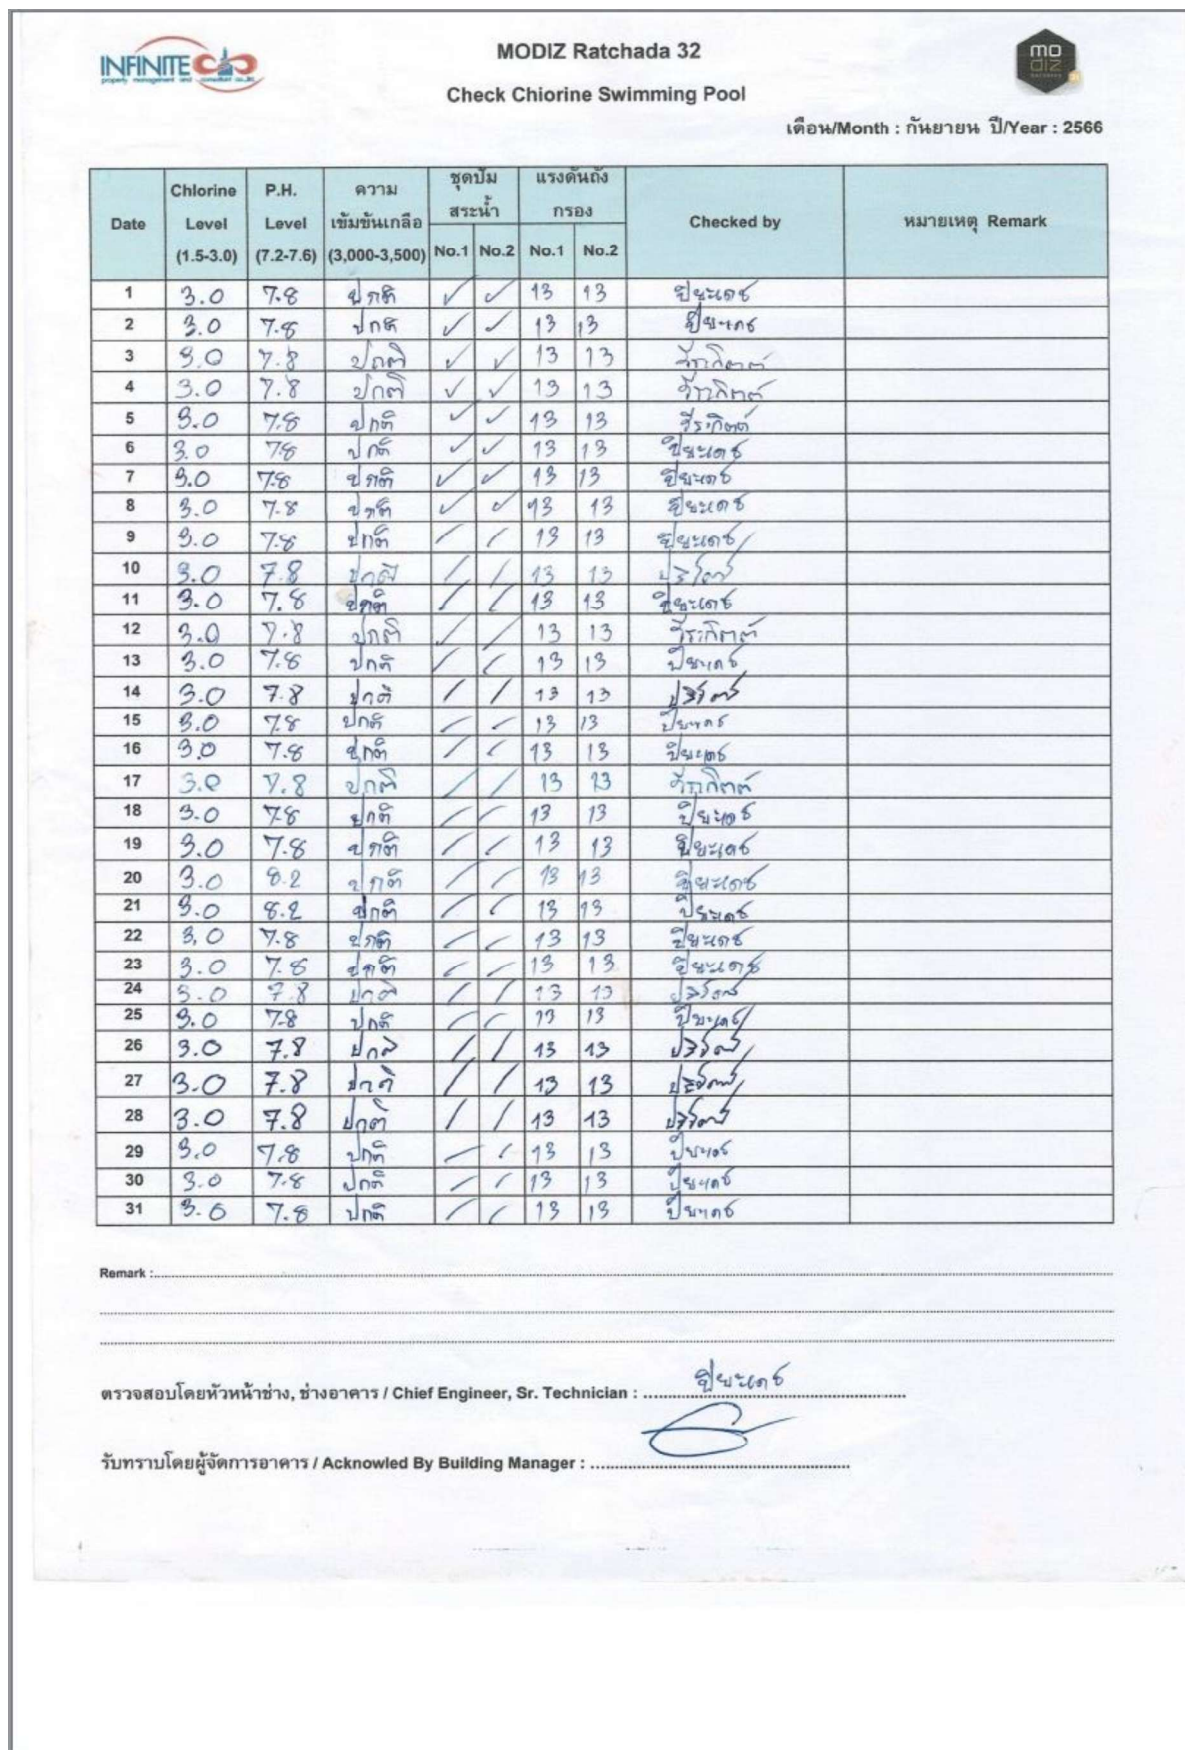 INFINITE
property management and consultant co.,ltd.
MODIZ Ratchada 32
mo
diz
Check Chiorine Swimming Pool
เดือน/Month : กันยายน ปี/Year : 2566
Date Chlorine Level (1.5-3.0) P.H. Level (7.2-7.6) ความเข้มข้นเกลือ (3,000-3,500) ชุดปั๊มสระน้ำ No.1 No.2 แรงดันถังกรอง No.1 No.2 Checked by หมายเหตุ Remark
1 3.0 7.8 ปกติ ✓ ✓ 13 13 ปิยะเดช
2 3.0 7.8 ปกติ ✓ ✓ 13 13 ปิยะเดช
3 3.0 7.8 ปกติ ✓ ✓ 13 13 วีระกิตต์
4 3.0 7.8 ปกติ ✓ ✓ 13 13 วีระกิตต์
5 3.0 7.8 ปกติ ✓ ✓ 13 13 วีระกิตต์
6 3.0 7.8 ปกติ ✓ ✓ 13 13 ปิยะเดช
7 3.0 7.8 ปกติ ✓ ✓ 13 13 ปิยะเดช
8 3.0 7.8 ปกติ ✓ ✓ 13 13 ปิยะเดช
9 3.0 7.8 ปกติ / / 13 13 ปิยะเดช
10 3.0 7.8 ปกติ / / 13 13
11 3.0 7.8 ปกติ / / 13 13 ปิยะเดช
12 3.0 7.8 ปกติ / / 13 13 วีระกิตต์
13 3.0 7.8 ปกติ / / 13 13 ปิยะเดช
14 3.0 7.8 ปกติ / / 13 13
15 3.0 7.8 ปกติ / / 13 13 ปิยะเดช
16 3.0 7.8 ปกติ / / 13 13 ปิยะเดช
17 3.0 7.8 ปกติ / / 13 13 วีระกิตต์
18 3.0 7.8 ปกติ / / 13 13 ปิยะเดช
19 3.0 7.8 ปกติ / / 13 13 ปิยะเดช
20 3.0 8.2 ปกติ / / 13 13 ปิยะเดช
21 3.0 8.2 ปกติ / / 13 13 ปิยะเดช
22 3.0 7.8 ปกติ / / 13 13 ปิยะเดช
23 3.0 7.8 ปกติ / / 13 13 ปิยะเดช
24 3.0 7.8 ปกติ / / 13 13
25 3.0 7.8 ปกติ / / 13 13 ปิยะเดช
26 3.0 7.8 ปกติ / / 13 13
27 3.0 7.8 ปกติ / / 13 13
28 3.0 7.8 ปกติ / / 13 13
29 3.0 7.8 ปกติ / / 13 13 ปิยะเดช
30 3.0 7.8 ปกติ / / 13 13 ปิยะเดช
31 3.0 7.8 ปกติ / / 13 13 ปิยะเดช
Remark :
ตรวจสอบโดยหัวหน้าช่าง, ช่างอาคาร / Chief Engineer, Sr. Technician : ปิยะเดช
รับทราบโดยผู้จัดการอาคาร / Acknowled By Building Manager :